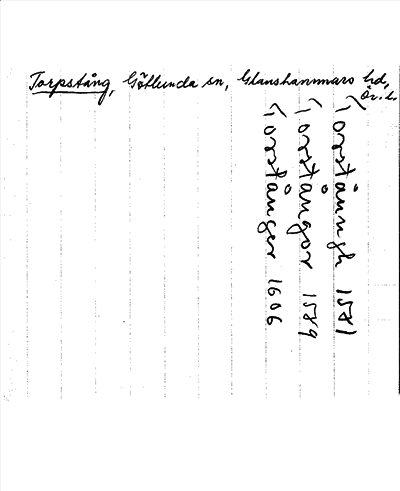 Torpstång, Götlunda sn, Glanshammars hd,
Ör. l.
Torstånngh 1581
Torstångor 1589
Torstånger 1606